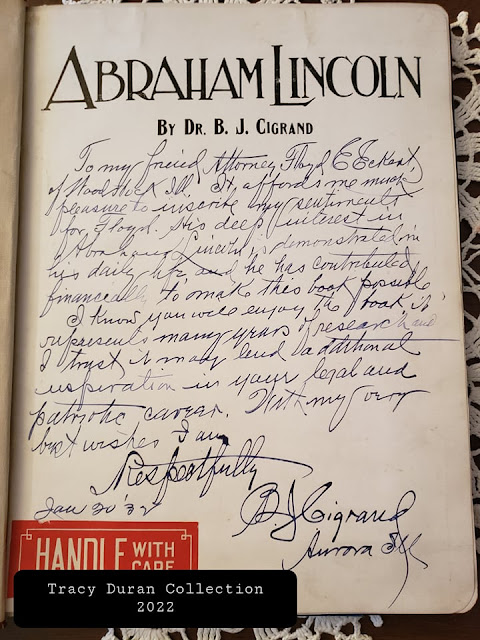 ABRAHAM LINCOLN
BY DR. B. J. CIGRAND
To my friend Attorney Floyd E Eckert,
of Woodstock Ill. It affords me much
pleasure to inscribe my sentiments
for Floyd. His deep interest in
Abraham Lincoln is demonstrated in
his daily life and he has contributed
financially to make this book possible
I know you will enjoy the book it
represents many years of research and
I trust it may lend additional
inspiration in your legal and
patriotic career. With my very
best wishes I am
Respectfully
Jan 30 '32
B. J. Cigrand
Aurora Ill
HANDLE WITH
CARE
Tracy Duran Collection
2022